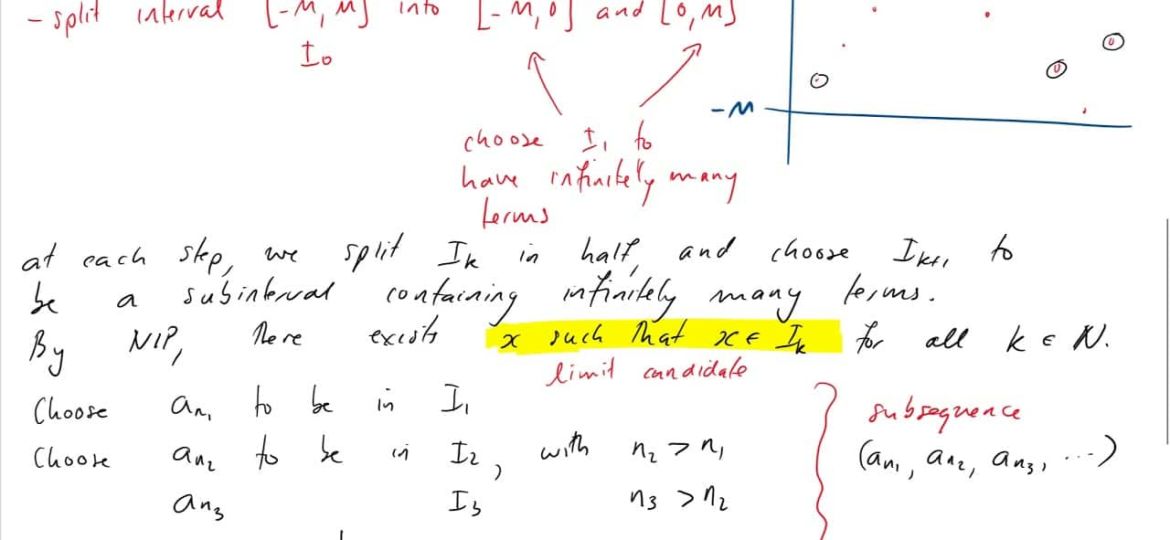 - split interval [-M, M] into [-M, 0] and [0, M]
I₀
-M
choose I₁ to
have infinitely many
terms
at each step, we split Iₖ in half, and choose Iₖ₊₁ to
be a subinterval containing infinitely many terms.
By NIP, there exists x such that x ∈ Iₖ for all k ∈ N.
limit candidate
Choose aₙ₁ to be in I₁
subsequence
Choose aₙ₂ to be in I₂, with n₂ > n₁
(aₙ₁, aₙ₂, aₙ₃, ...)
aₙ₃ I₃ n₃ > n₂